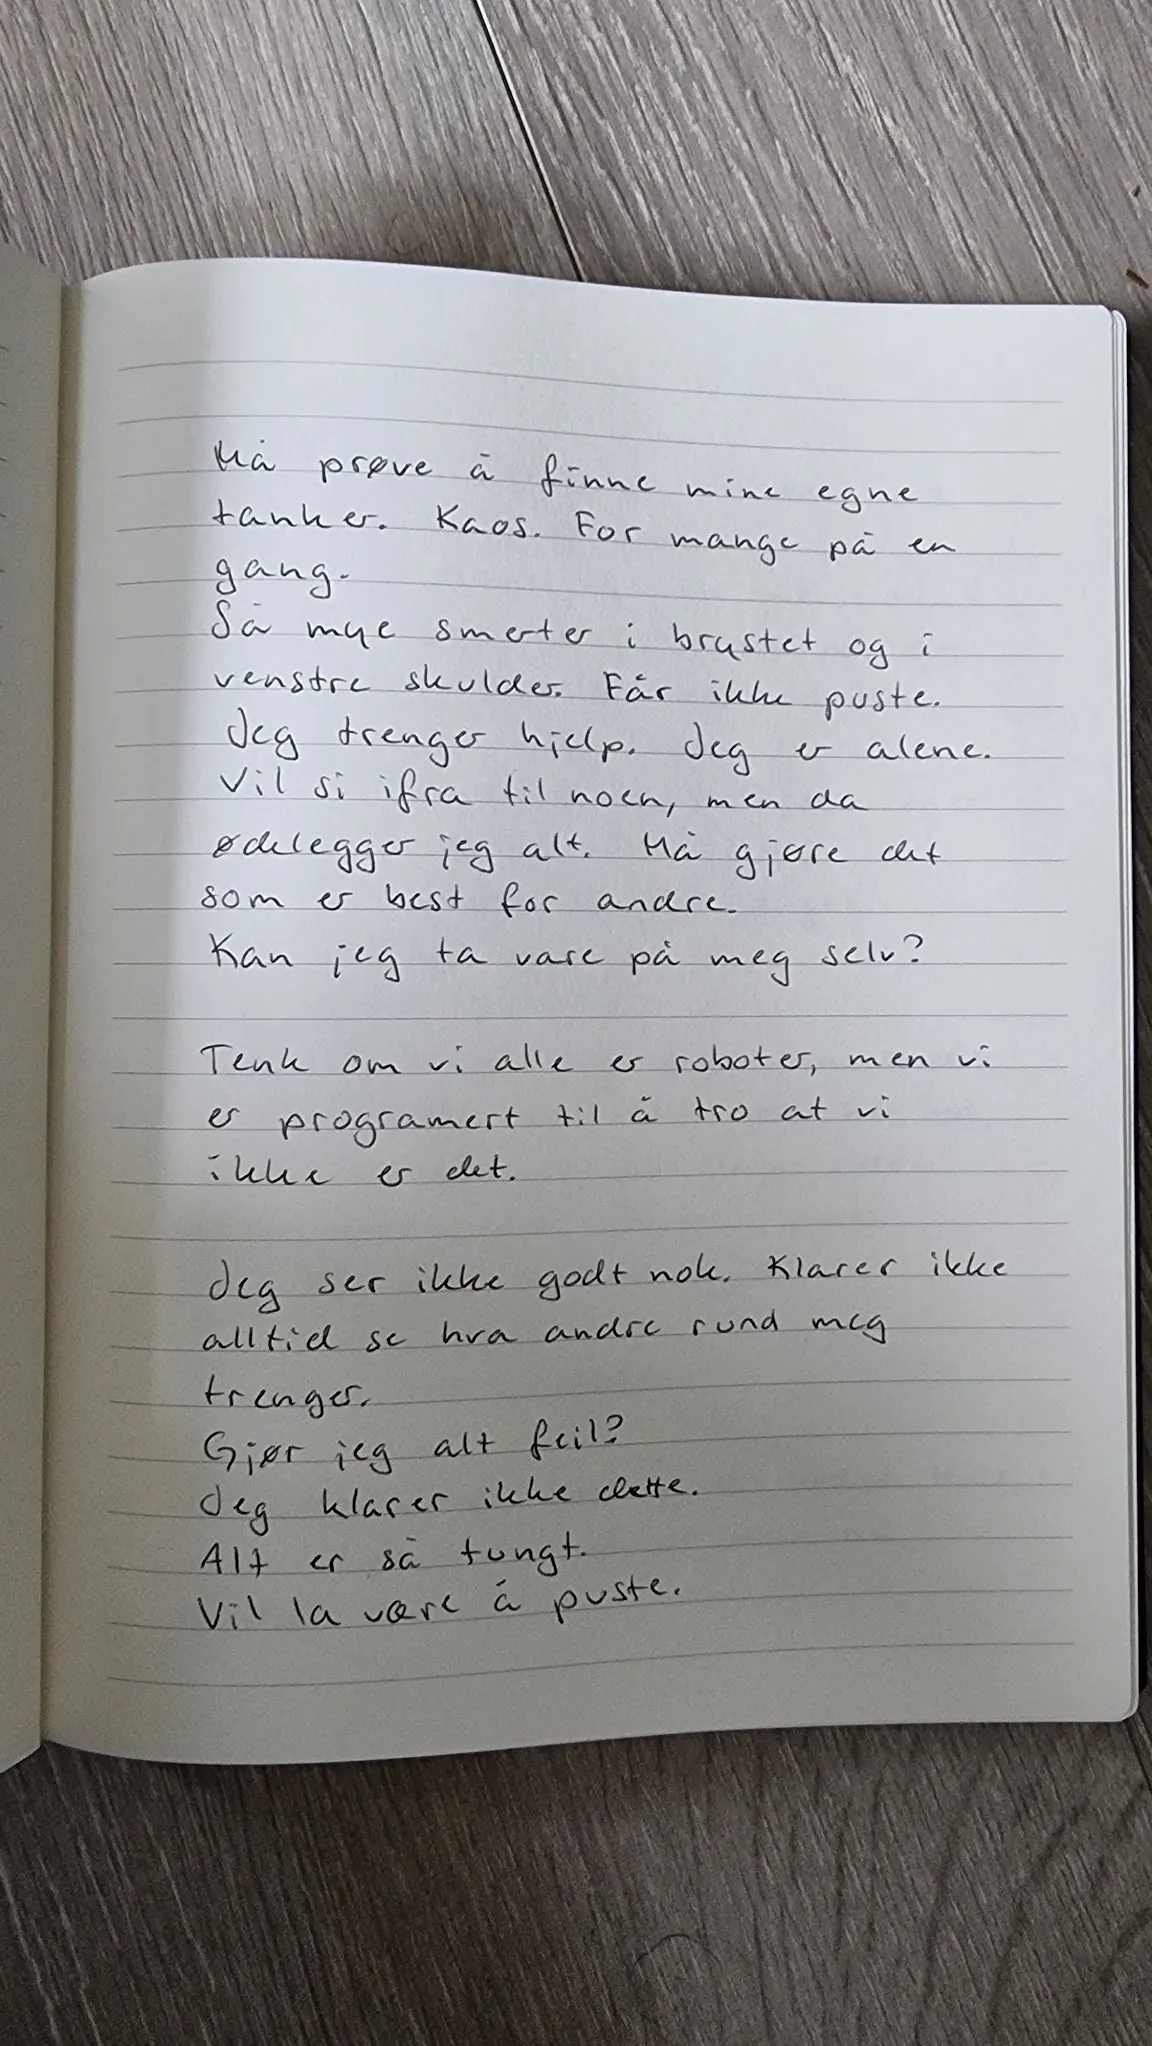 Må prøve å finne mine egne
tanker. Kaos. For mange på en
gang.
Så mye smerter i brystet og i
venstre skulder. Får ikke puste.
Jeg trenger hjelp. Jeg er alene.
Vil si ifra til noen, men da
ødelegger jeg alt. Må gjøre det
som er best for andre.
Kan jeg ta vare på meg selv?
Tenk om vi alle er roboter, men vi
er programert til å tro at vi
ikke er det.
Jeg ser ikke godt nok. Klarer ikke
alltid se hva andre rund meg
trenger.
Gjør jeg alt feil?
Jeg klarer ikke dette.
Alt er så tungt.
Vil la være å puste.